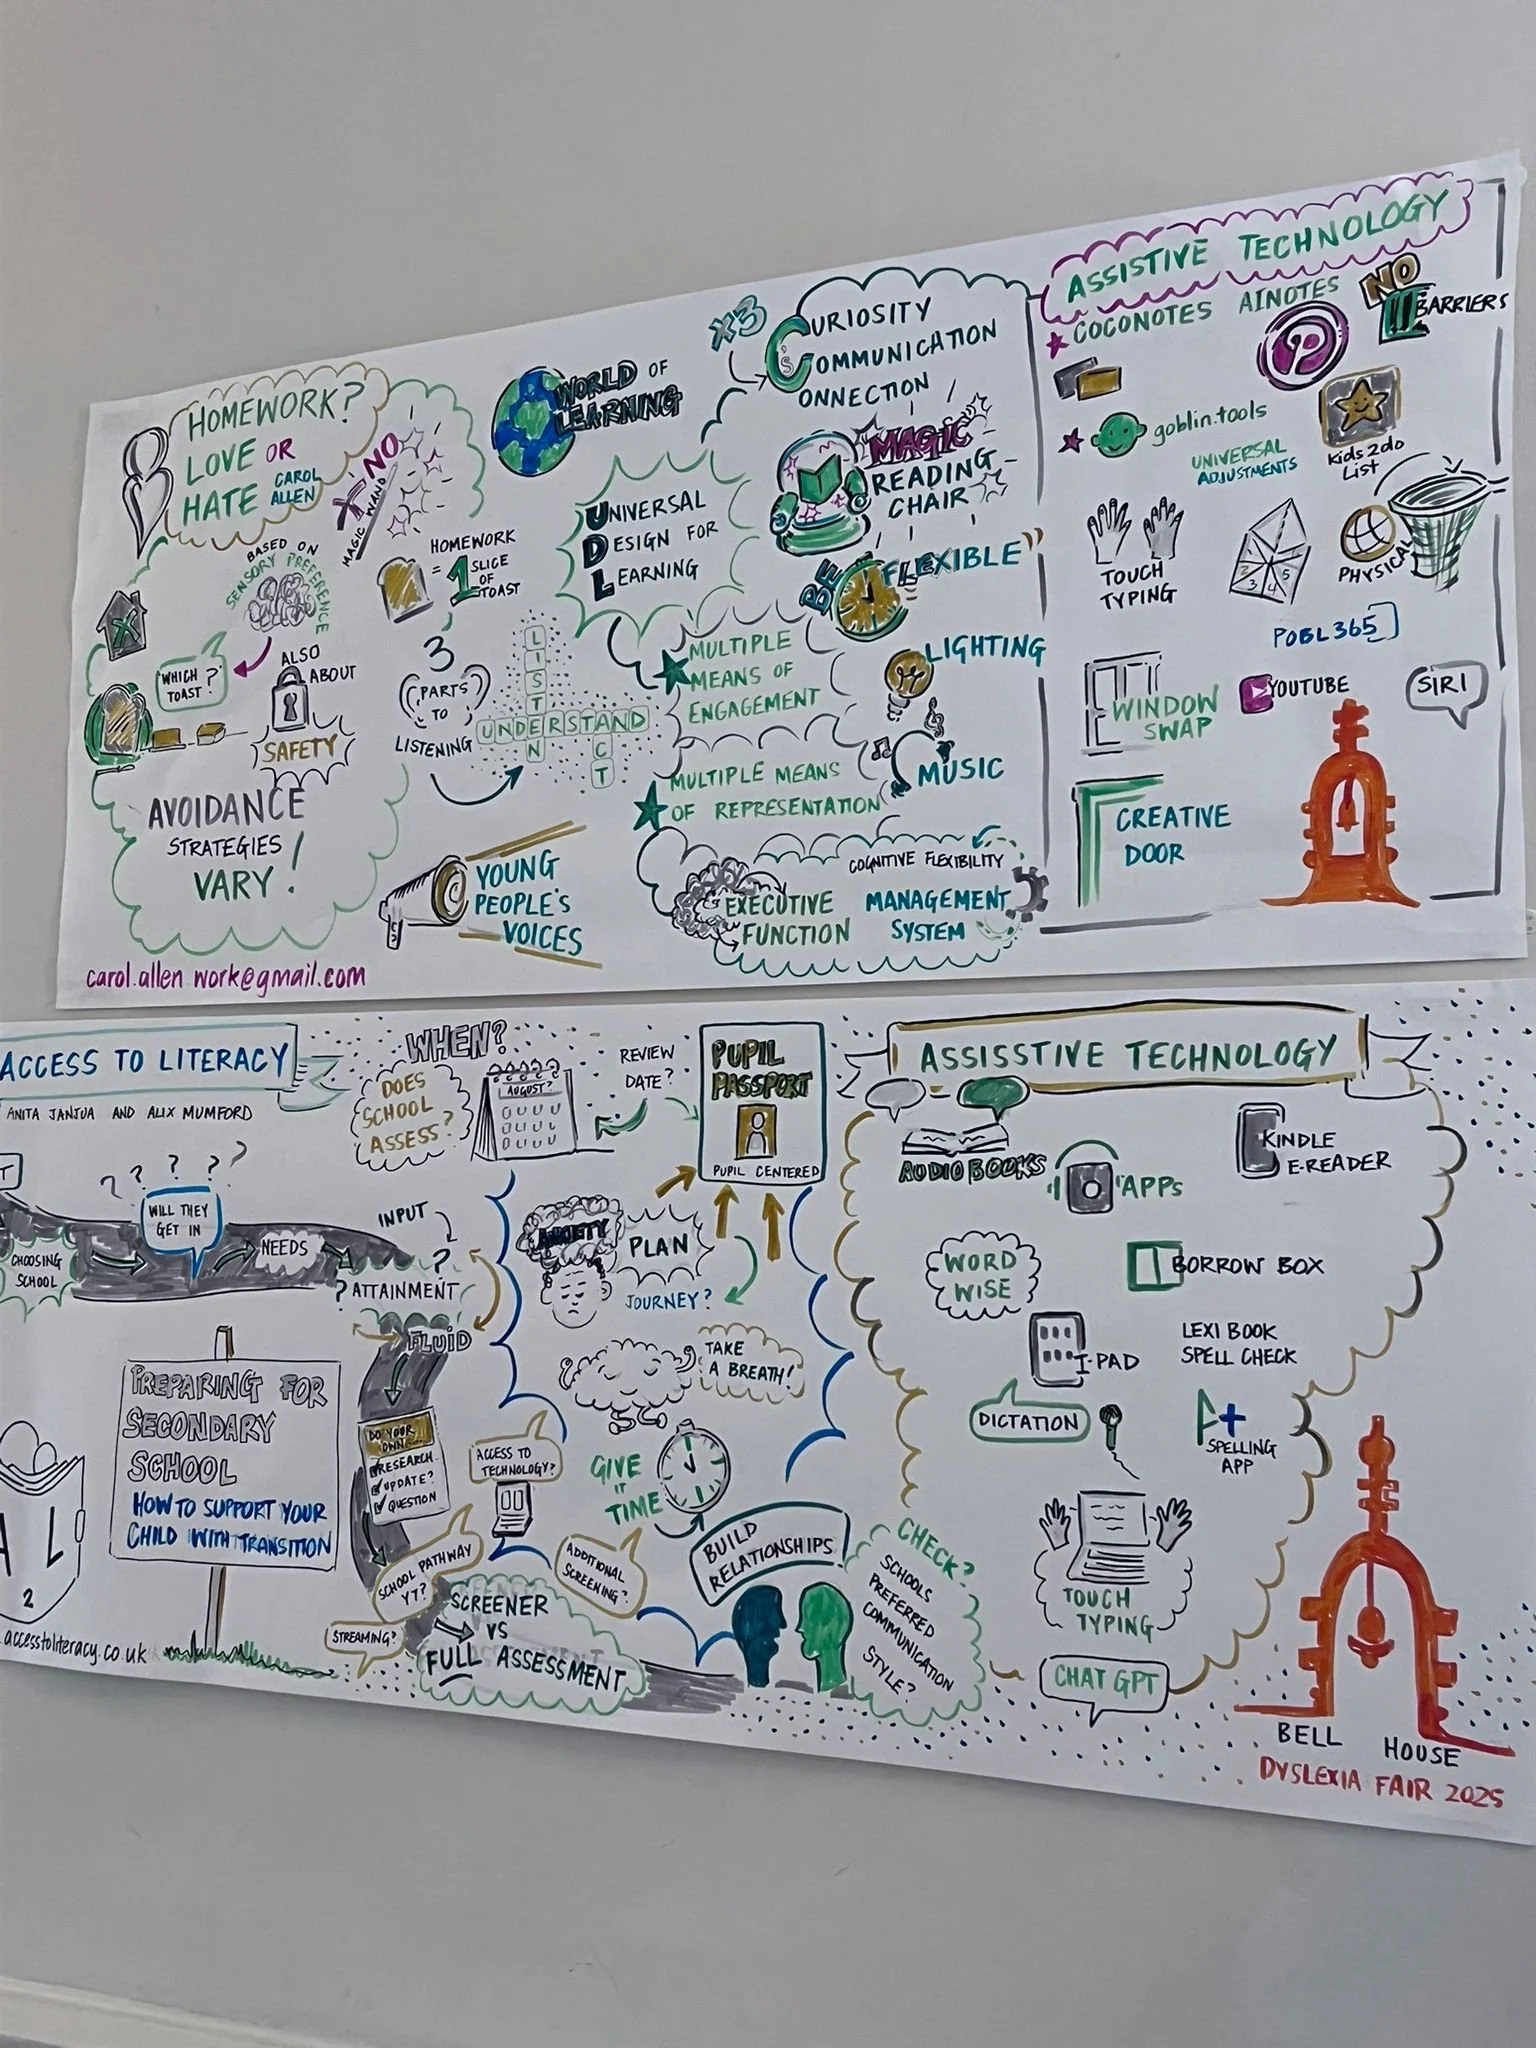 HOMEWORK?
LOVE OR
HATE
CAROL
ALLEN
NO
MAGIC WAND
BASED ON
SENSORY PREFERENCE
HOMEWORK
= 1 SLICE
OF
TOAST
WHICH
TOAST?
ALSO
ABOUT
SAFETY
3
PARTS
TO
LISTENING
LISTEN
UNDERSTAND
ACT
AVOIDANCE
STRATEGIES
VARY!
YOUNG
PEOPLE'S
VOICES
carol.allen work@gmail.com
WORLD OF
LEARNING
UNIVERSAL
DESIGN FOR
LEARNING
x3
C'S
CURIOSITY
COMMUNICATION
CONNECTION
MAGIC
READING
CHAIR
BE FLEXIBLE"
MULTIPLE
MEANS OF
ENGAGEMENT
LIGHTING
MUSIC
MULTIPLE MEANS
OF REPRESENTATION
COGNITIVE FLEXIBILITY
EXECUTIVE
FUNCTION
MANAGEMENT
SYSTEM
ASSISTIVE TECHNOLOGY
COCONOTES AINOTES
NO
BARRIERS
goblin.tools
UNIVERSAL
ADJUSTMENTS
Kids 2do
List
TOUCH
TYPING
2 3 4 5
PHYSICAL
POBL365
WINDOW
SWAP
YOUTUBE
SIRI
CREATIVE
DOOR
ACCESS TO LITERACY
ANITA JANJUA AND ALIX MUMFORD
T
CHOOSING
SCHOOL
? ? ? ?
WILL THEY
GET IN
NEEDS
INPUT
?
? ATTAINMENT
FLUID
PREPARING FOR
SECONDARY
SCHOOL
HOW TO SUPPORT YOUR
CHILD WITH TRANSITION
A L
2
accesstoliteracy.co.uk
DO YOUR
OWN
RESEARCH
UPDATE?
QUESTION
WHEN?
DOES
SCHOOL
ASSESS?
AUGUST?
REVIEW
DATE?
PUPIL
PASSPORT
PUPIL CENTERED
ANXIETY
PLAN
JOURNEY?
TAKE
A BREATH!
GIVE
IT
TIME
ACCESS TO
TECHNOLOGY?
SCHOOL PATHWAY
Y7?
ADDITIONAL
SCREENING?
STREAMING?
SCREENER
VS
FULL ASSESSMENT
BUILD
RELATIONSHIPS
CHECK?
SCHOOLS
PREFERRED
COMMUNICATION
STYLE?
ASSISSTIVE TECHNOLOGY
AUDIO BOOKS
APPs
KINDLE
E-READER
WORD
WISE
BORROW BOX
I-PAD
LEXI BOOK
SPELL CHECK
DICTATION
A+
SPELLING
APP
TOUCH
TYPING
CHAT GPT
BELL HOUSE
DYSLEXIA FAIR 2025